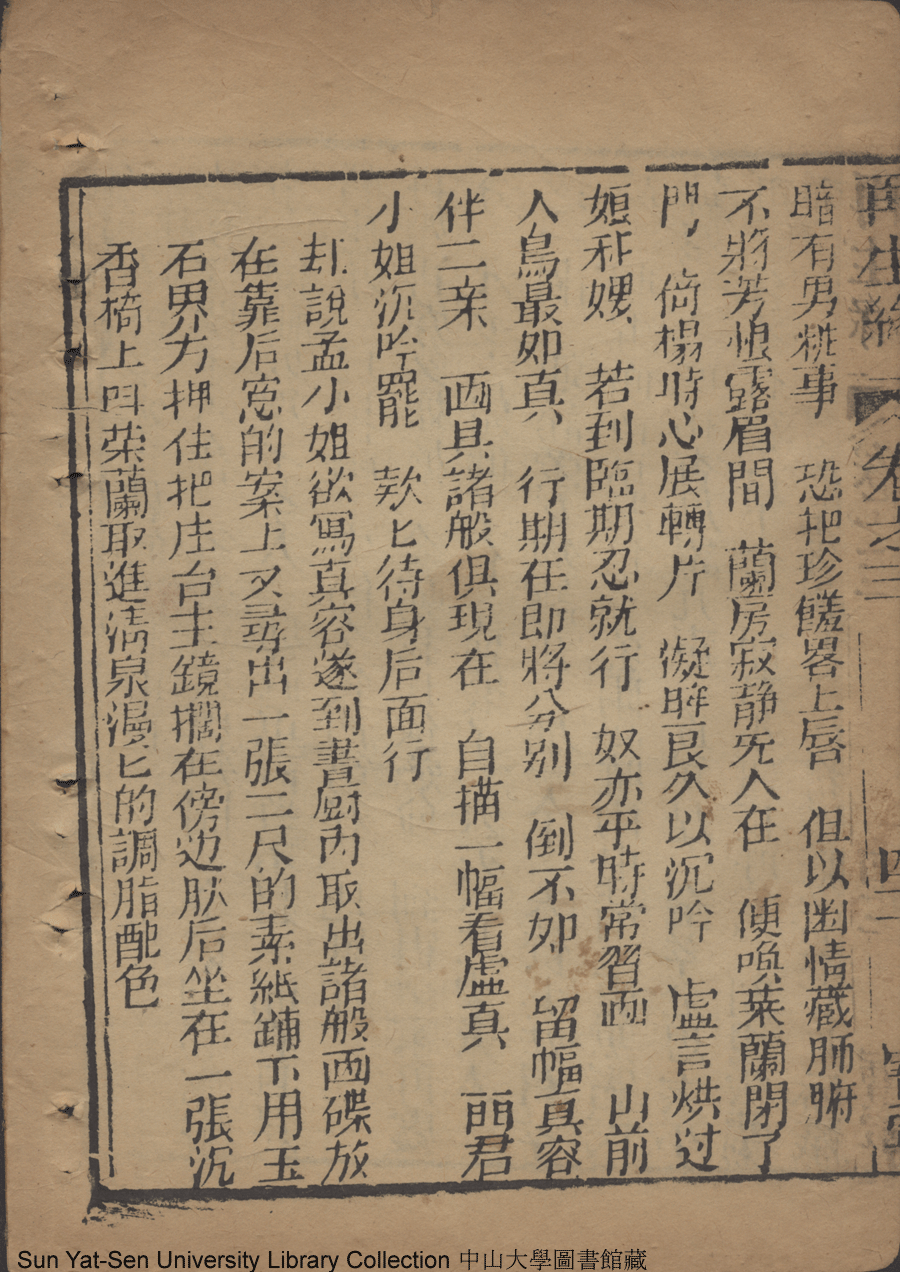 再生緣 卷之三 四
暗有男粧事 恐把珍饈畧上唇 但以幽情藏肺腑
不將芳恨露眉間 蘭房寂静旡人在 便喚荣蘭閉了
門 倚楊時心展轉片 凝眸良久以沉吟 虛言烘过
娘和嫂 若到臨期忍就行 奴亦平時常習画 山前
人鳥最如真 行期在即將分别 倒不如 留幅真容
伴二亲 画具諸般俱現在 自描一幅看虛真 丽君
小姐沉吟罷 欵匕待身后面行
却說孟小姐欲寫真容遂到書厨内取出諸般画碟放
在靠后窓的案上又尋出一張二尺的素紙鋪下用玉
石界方押住把庄台主鏡擱在傍边肰后坐在一張沉
香椅上叫荣蘭取進清泉漫匕的調脂配色
Sun Yat-Sen University Library Collection 中山大學圖書館藏